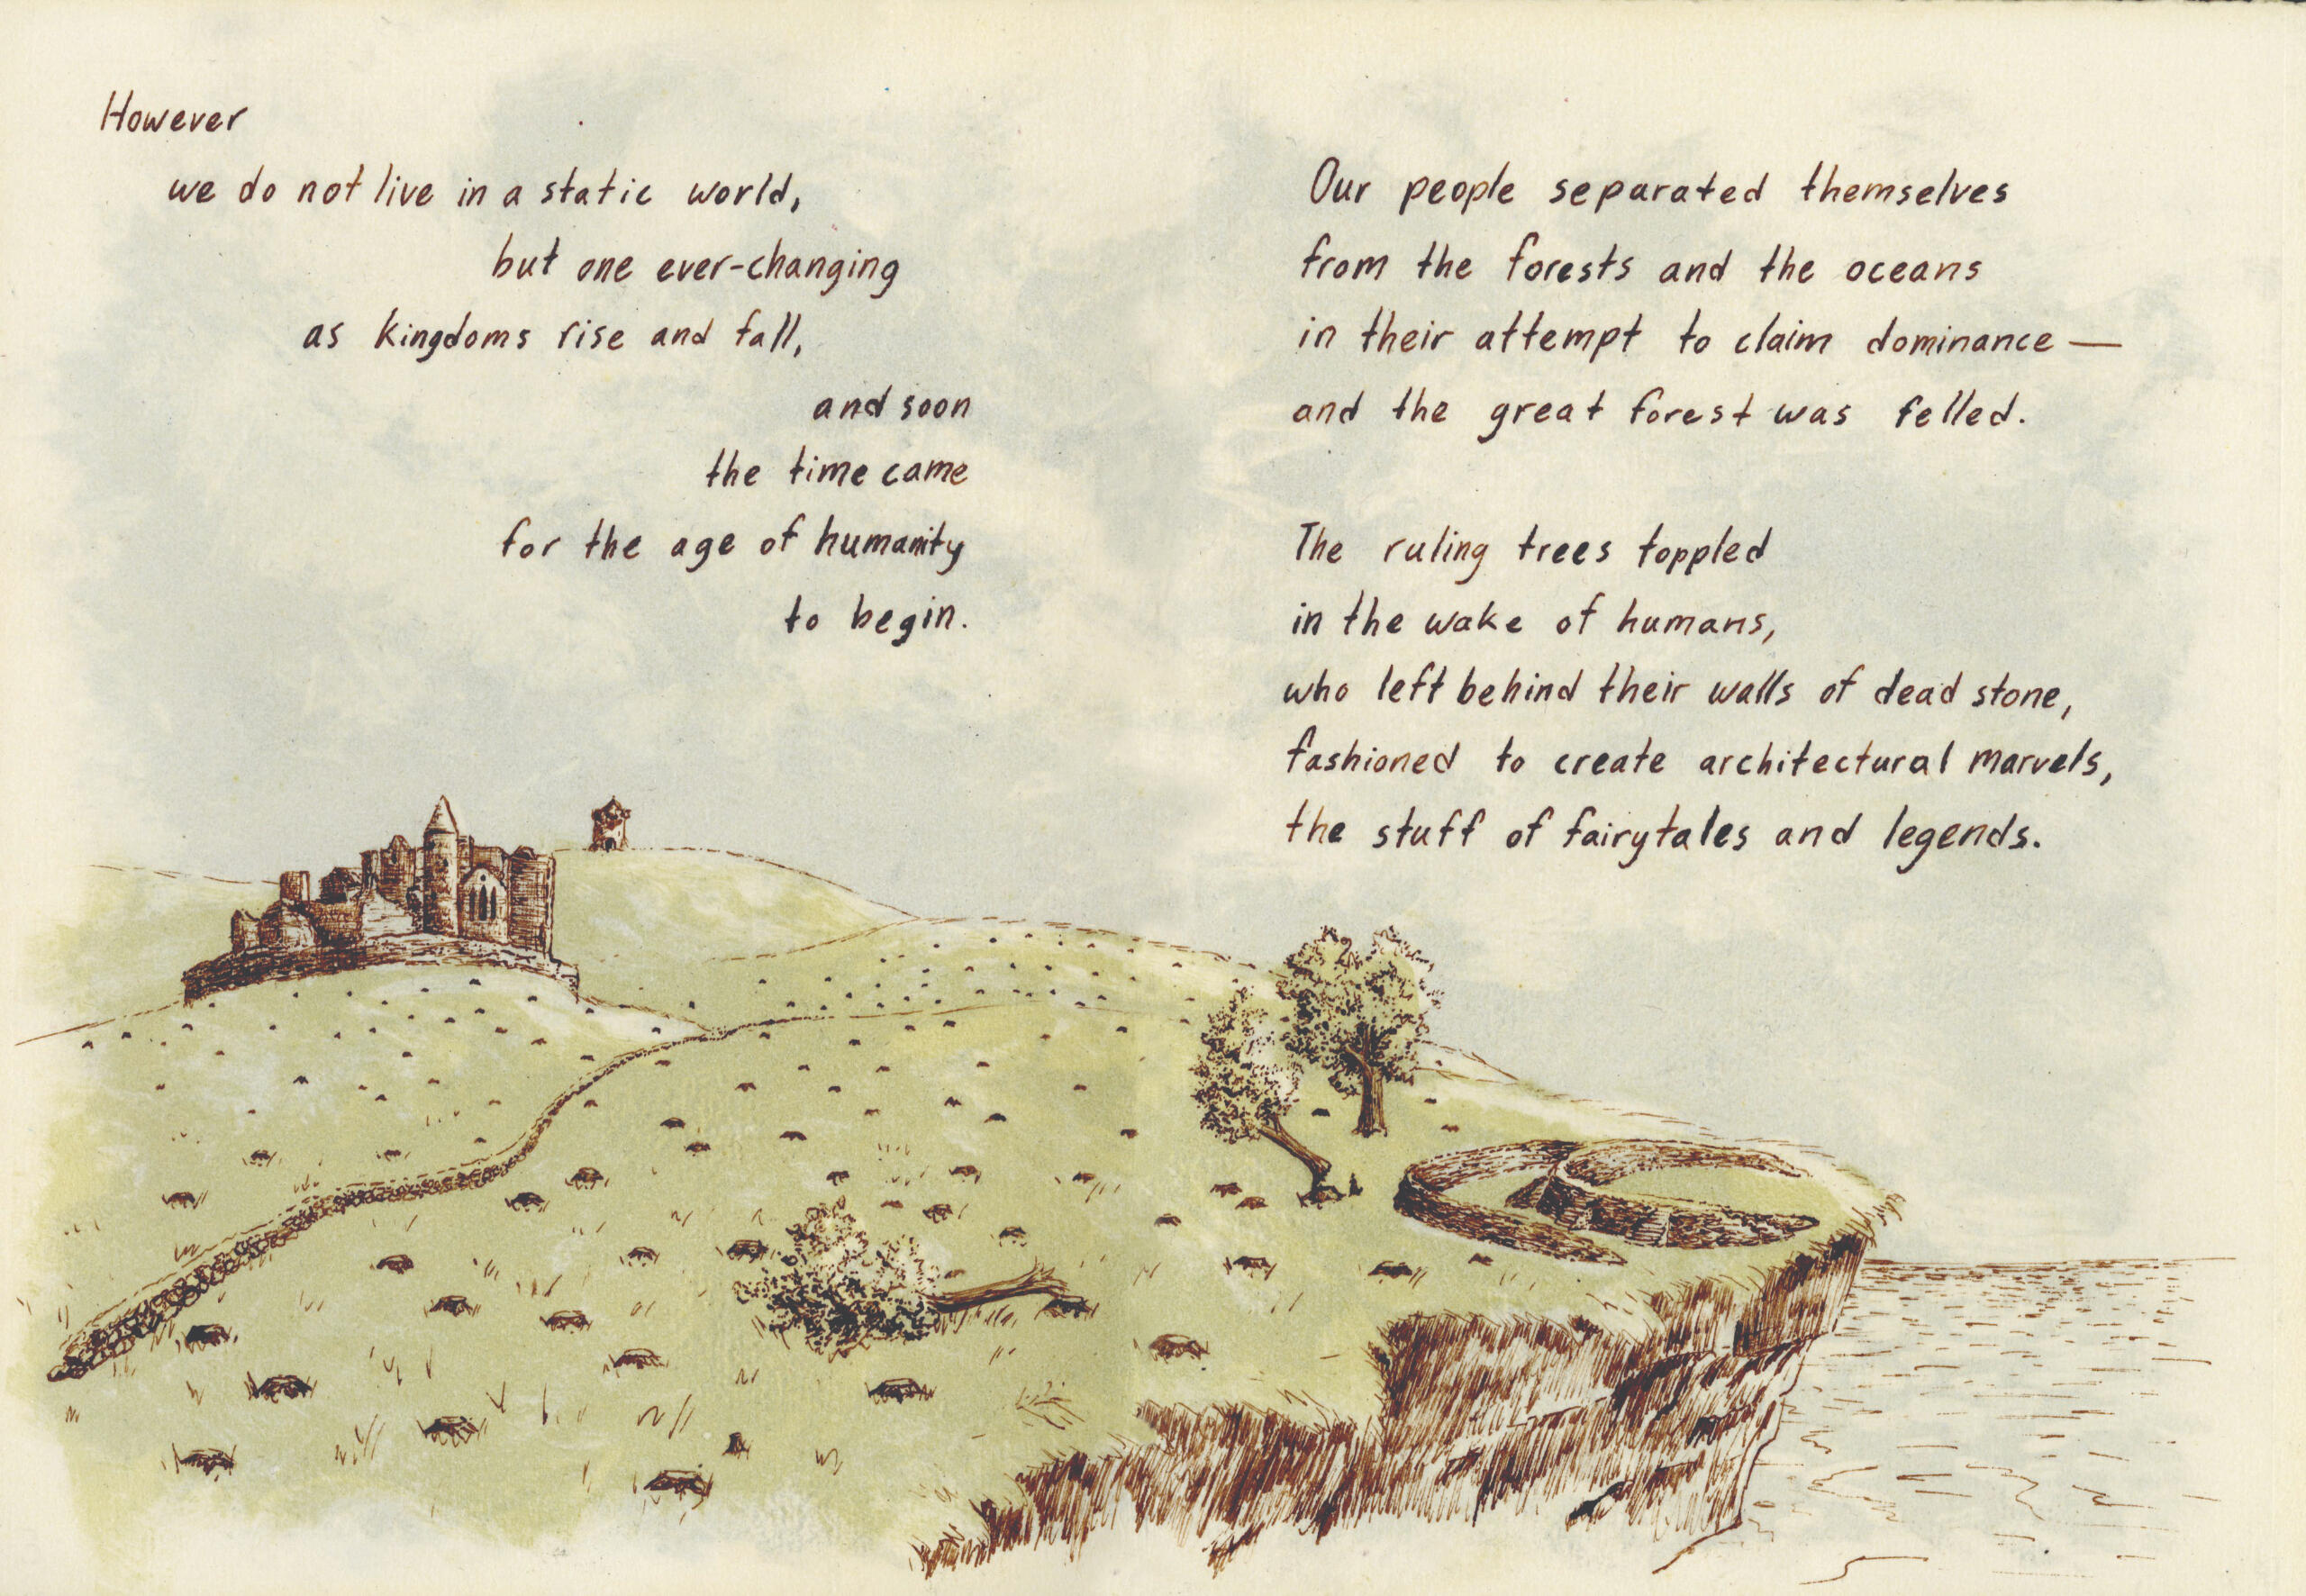 However
we do not live in a static world,
but one ever-changing
as kingdoms rise and fall,
and soon
the time came
for the age of humanity
to begin.
Our people separated themselves
from the forests and the oceans
in their attempt to claim dominance —
and the great forest was felled.
The ruling trees toppled
in the wake of humans,
who left behind their walls of dead stone,
fashioned to create architectural marvels,
the stuff of fairytales and legends.